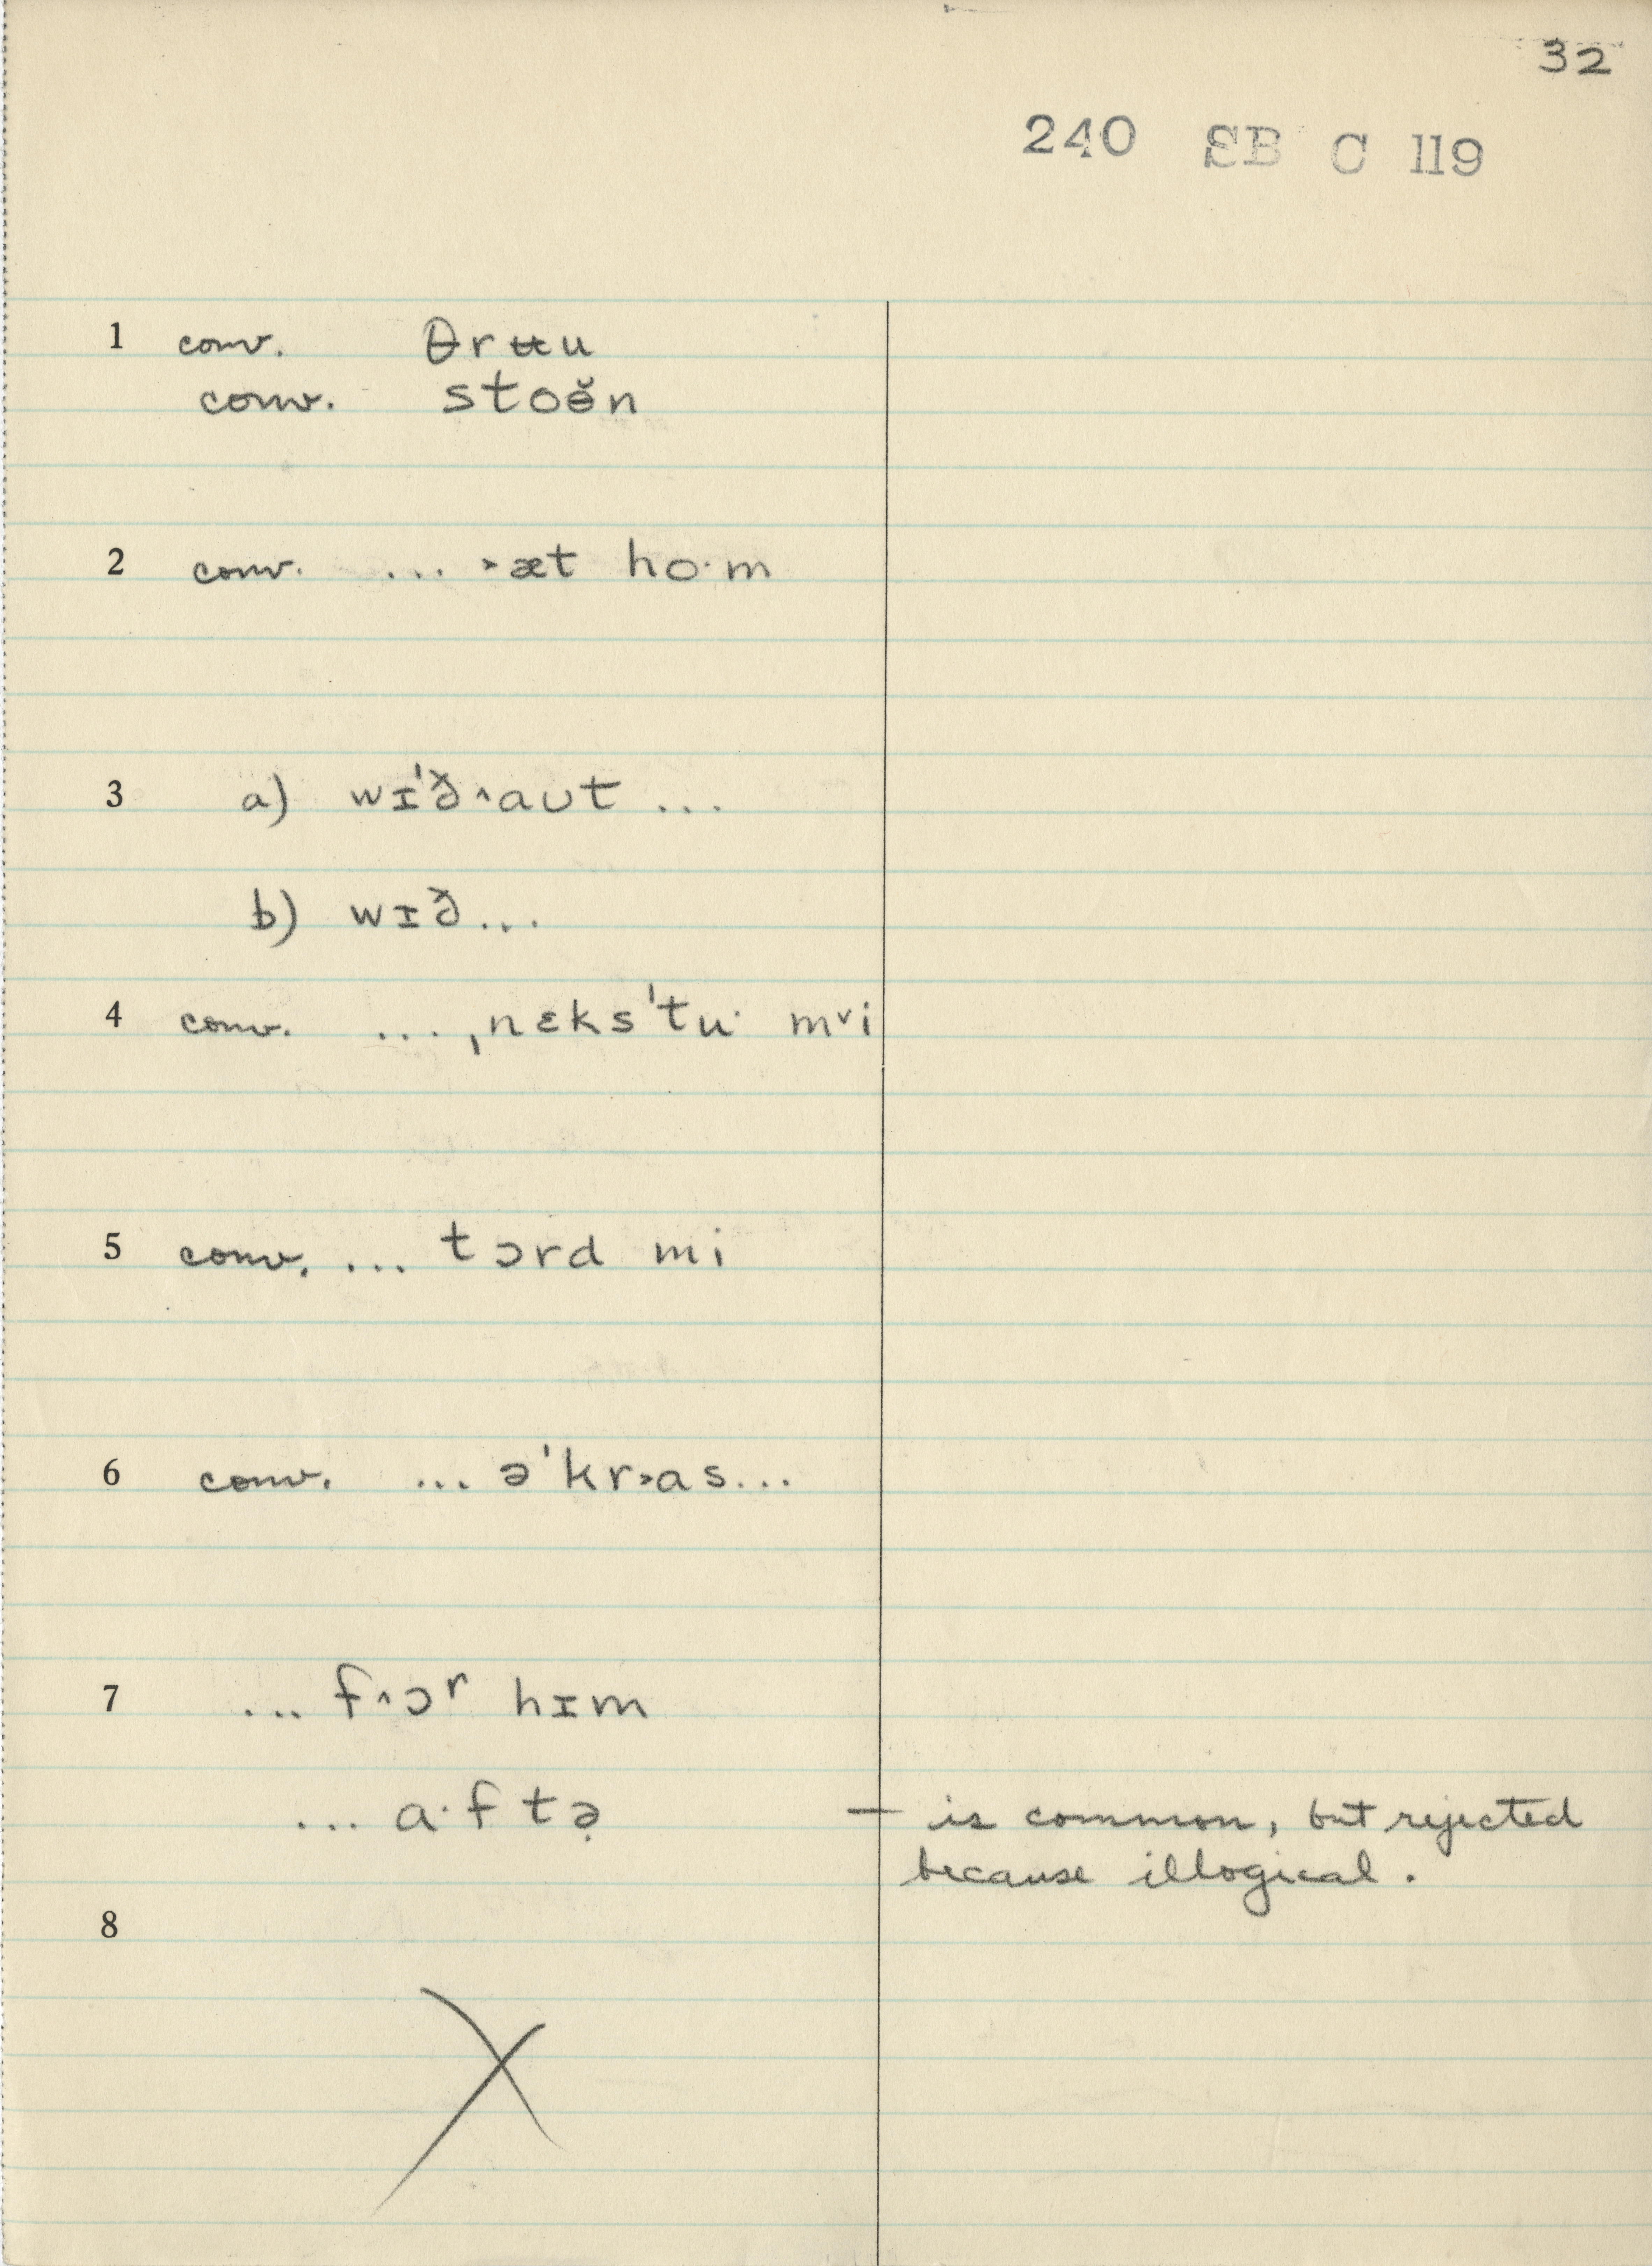 32
240 SB C 119
1 conv. θrʉu
conv. stoɵ̆n
2 conv. ... ˃æt ho·m
3 a) wɪ'ð˄aʊt ...
b) wɪð...
4 conv. ... ˌnɛks'tu· m˅i
5 conv. ... tɔrd mi
6 conv. ... ə'kr˃as...
7 ... f˄ɔʳ hɪm
... a·ftə̣ — is common, but rejected
because illogical.
8
X